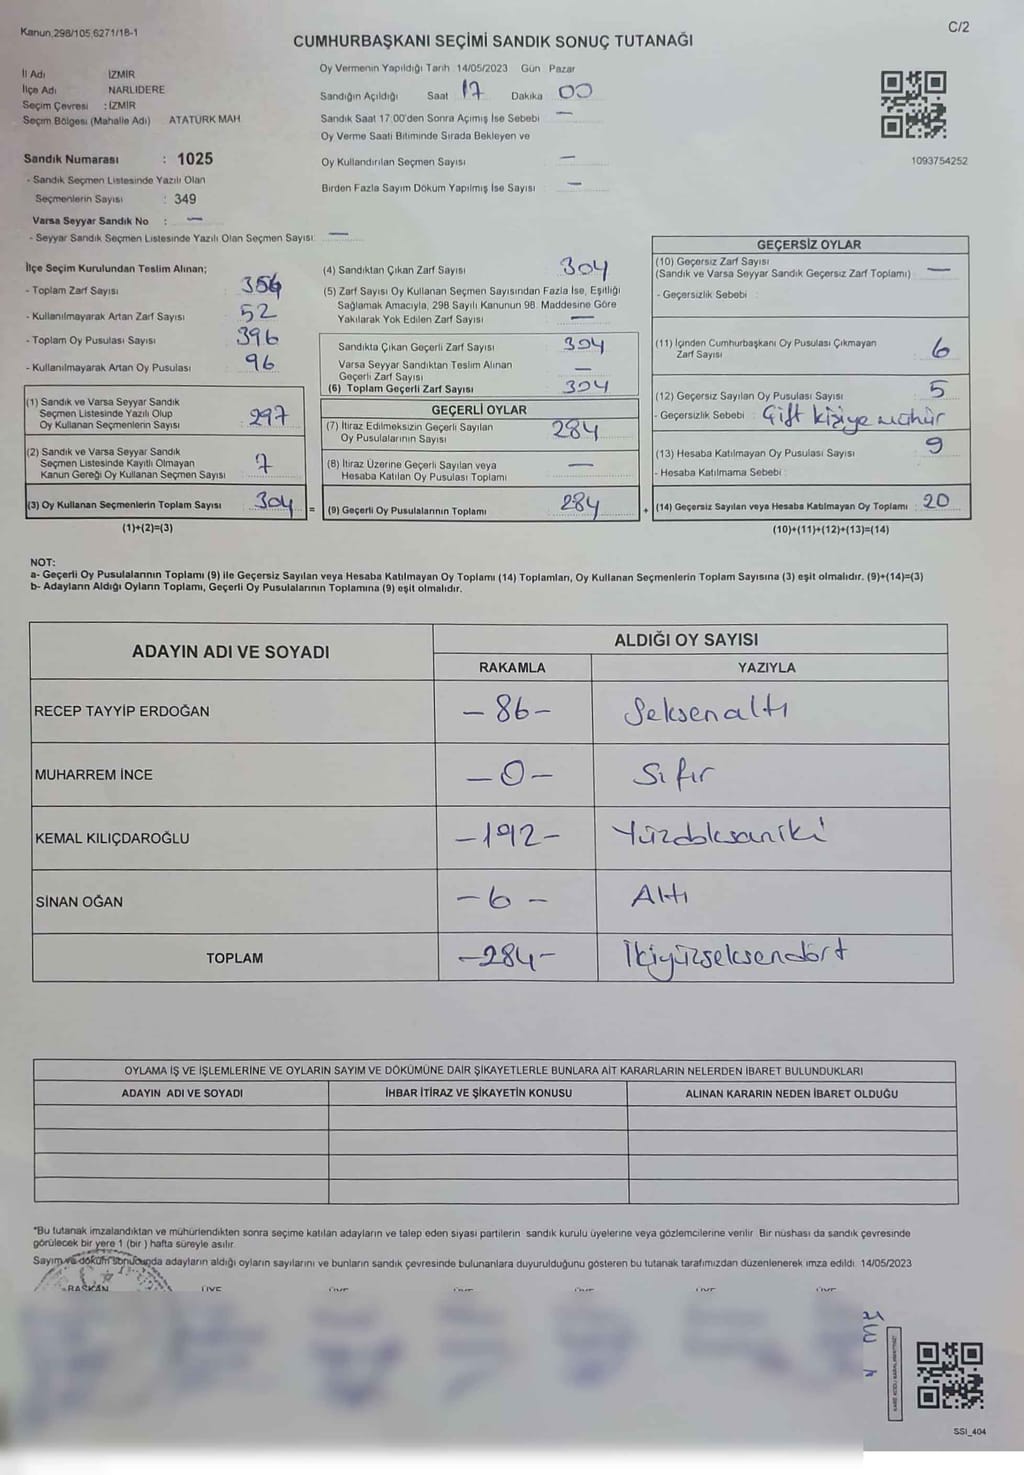 Kanun,298/105,6271/18-1
C/2
CUMHURBAŞKANI SEÇİMİ SANDIK SONUÇ TUTANAĞI
İl Adı İZMİR
İlçe Adı NARLIDERE
Seçim Çevresi : İZMİR
Seçim Bölgesi (Mahalle Adı) ATATÜRK MAH
Sandık Numarası : 1025
- Sandık Seçmen Listesinde Yazılı Olan
Seçmenlerin Sayısı : 349
Varsa Seyyar Sandık No : —
- Seyyar Sandık Seçmen Listesinde Yazılı Olan Seçmen Sayısı: —
Oy Vermenin Yapıldığı Tarih 14/05/2023 Gün Pazar
Sandığın Açıldığı Saat 17 Dakika 00
Sandık Saat 17:00'den Sonra Açımış İse Sebebi —
Oy Verme Saati Bitiminde Sırada Bekleyen ve
Oy Kullandırılan Seçmen Sayısı —
Birden Fazla Sayım Döküm Yapılmış İse Sayısı —
1093754252
İlçe Seçim Kurulundan Teslim Alınan;
- Toplam Zarf Sayısı 356
- Kullanılmayarak Artan Zarf Sayısı 52
- Toplam Oy Pusulası Sayısı 396
- Kullanılmayarak Artan Oy Pusulası 96
(1) Sandık ve Varsa Seyyar Sandık
Seçmen Listesinde Yazılı Olup
Oy Kullanan Seçmenlerin Sayısı 297
(2) Sandık ve Varsa Seyyar Sandık
Seçmen Listesinde Kayıtlı Olmayan
Kanun Gereği Oy Kullanan Seçmen Sayısı 7
(3) Oy Kullanan Seçmenlerin Toplam Sayısı 304 =
(1)+(2)=(3)
(4) Sandıktan Çıkan Zarf Sayısı 304
(5) Zarf Sayısı Oy Kullanan Seçmen Sayısından Fazla İse, Eşitliği
Sağlamak Amacıyla, 298 Sayılı Kanunun 98. Maddesine Göre
Yakılarak Yok Edilen Zarf Sayısı —
Sandıkta Çıkan Geçerli Zarf Sayısı 304
Varsa Seyyar Sandıktan Teslim Alınan
Geçerli Zarf Sayısı —
(6) Toplam Geçerli Zarf Sayısı 304
GEÇERLİ OYLAR
(7) İtiraz Edilmeksizin Geçerli Sayılan
Oy Pusulalarının Sayısı 284
(8) İtiraz Üzerine Geçerli Sayılan veya
Hesaba Katılan Oy Pusulası Toplamı —
(9) Geçerli Oy Pusulalarının Toplamı 284 +
GEÇERSİZ OYLAR
(10) Geçersiz Zarf Sayısı
(Sandık ve Varsa Seyyar Sandık Geçersiz Zarf Toplamı) —
- Geçersizlik Sebebi :
(11) İçinden Cumhurbaşkanı Oy Pusulası Çıkmayan
Zarf Sayısı 6
(12) Geçersiz Sayılan Oy Pusulası Sayısı 5
- Geçersizlik Sebebi : Çift kişiye mühür
(13) Hesaba Katılmayan Oy Pusulası Sayısı 9
- Hesaba Katılmama Sebebi :
(14) Geçersiz Sayılan veya Hesaba Katılmayan Oy Toplamı 20
(10)+(11)+(12)+(13)=(14)
NOT:
a- Geçerli Oy Pusulalarının Toplamı (9) ile Geçersiz Sayılan veya Hesaba Katılmayan Oy Toplamı (14) Toplamları, Oy Kullanan Seçmenlerin Toplam Sayısına (3) eşit olmalıdır. (9)+(14)=(3)
b- Adayların Aldığı Oyların Toplamı, Geçerli Oy Pusulalarının Toplamına (9) eşit olmalıdır.
ADAYIN ADI VE SOYADI
ALDIĞI OY SAYISI
RAKAMLA YAZIYLA
RECEP TAYYİP ERDOĞAN - 86 - Seksenaltı
MUHARREM İNCE - 0 - Sıfır
KEMAL KILIÇDAROĞLU - 192 - Yüzdoksaniki
SİNAN OĞAN - 6 - Altı
TOPLAM - 284 - İkiyüzseksendört
OYLAMA İŞ VE İŞLEMLERİNE VE OYLARIN SAYIM VE DÖKÜMÜNE DAİR ŞİKAYETLERLE BUNLARA AİT KARARLARIN NELERDEN İBARET BULUNDUKLARI
ADAYIN ADI VE SOYADI İHBAR İTİRAZ VE ŞİKAYETİN KONUSU ALINAN KARARIN NEDEN İBARET OLDUĞU
*Bu tutanak imzalandıktan ve mühürlendikten sonra seçime katılan adayların ve talep eden siyasi partilerin sandık kurulu üyelerine veya gözlemcilerine verilir. Bir nüshası da sandık çevresinde
görülecek bir yere 1 (bir ) hafta süreyle asılır.
Sayım ve döküm sonucunda adayların aldığı oyların sayılarını ve bunların sandık çevresinde bulunanlara duyurulduğunu gösteren bu tutanak tarafımızdan düzenlenerek imza edildi. 14/05/2023
BAŞKAN ÜYE ÜYE ÜYE ÜYE ÜYE ÜYE
SSI_404